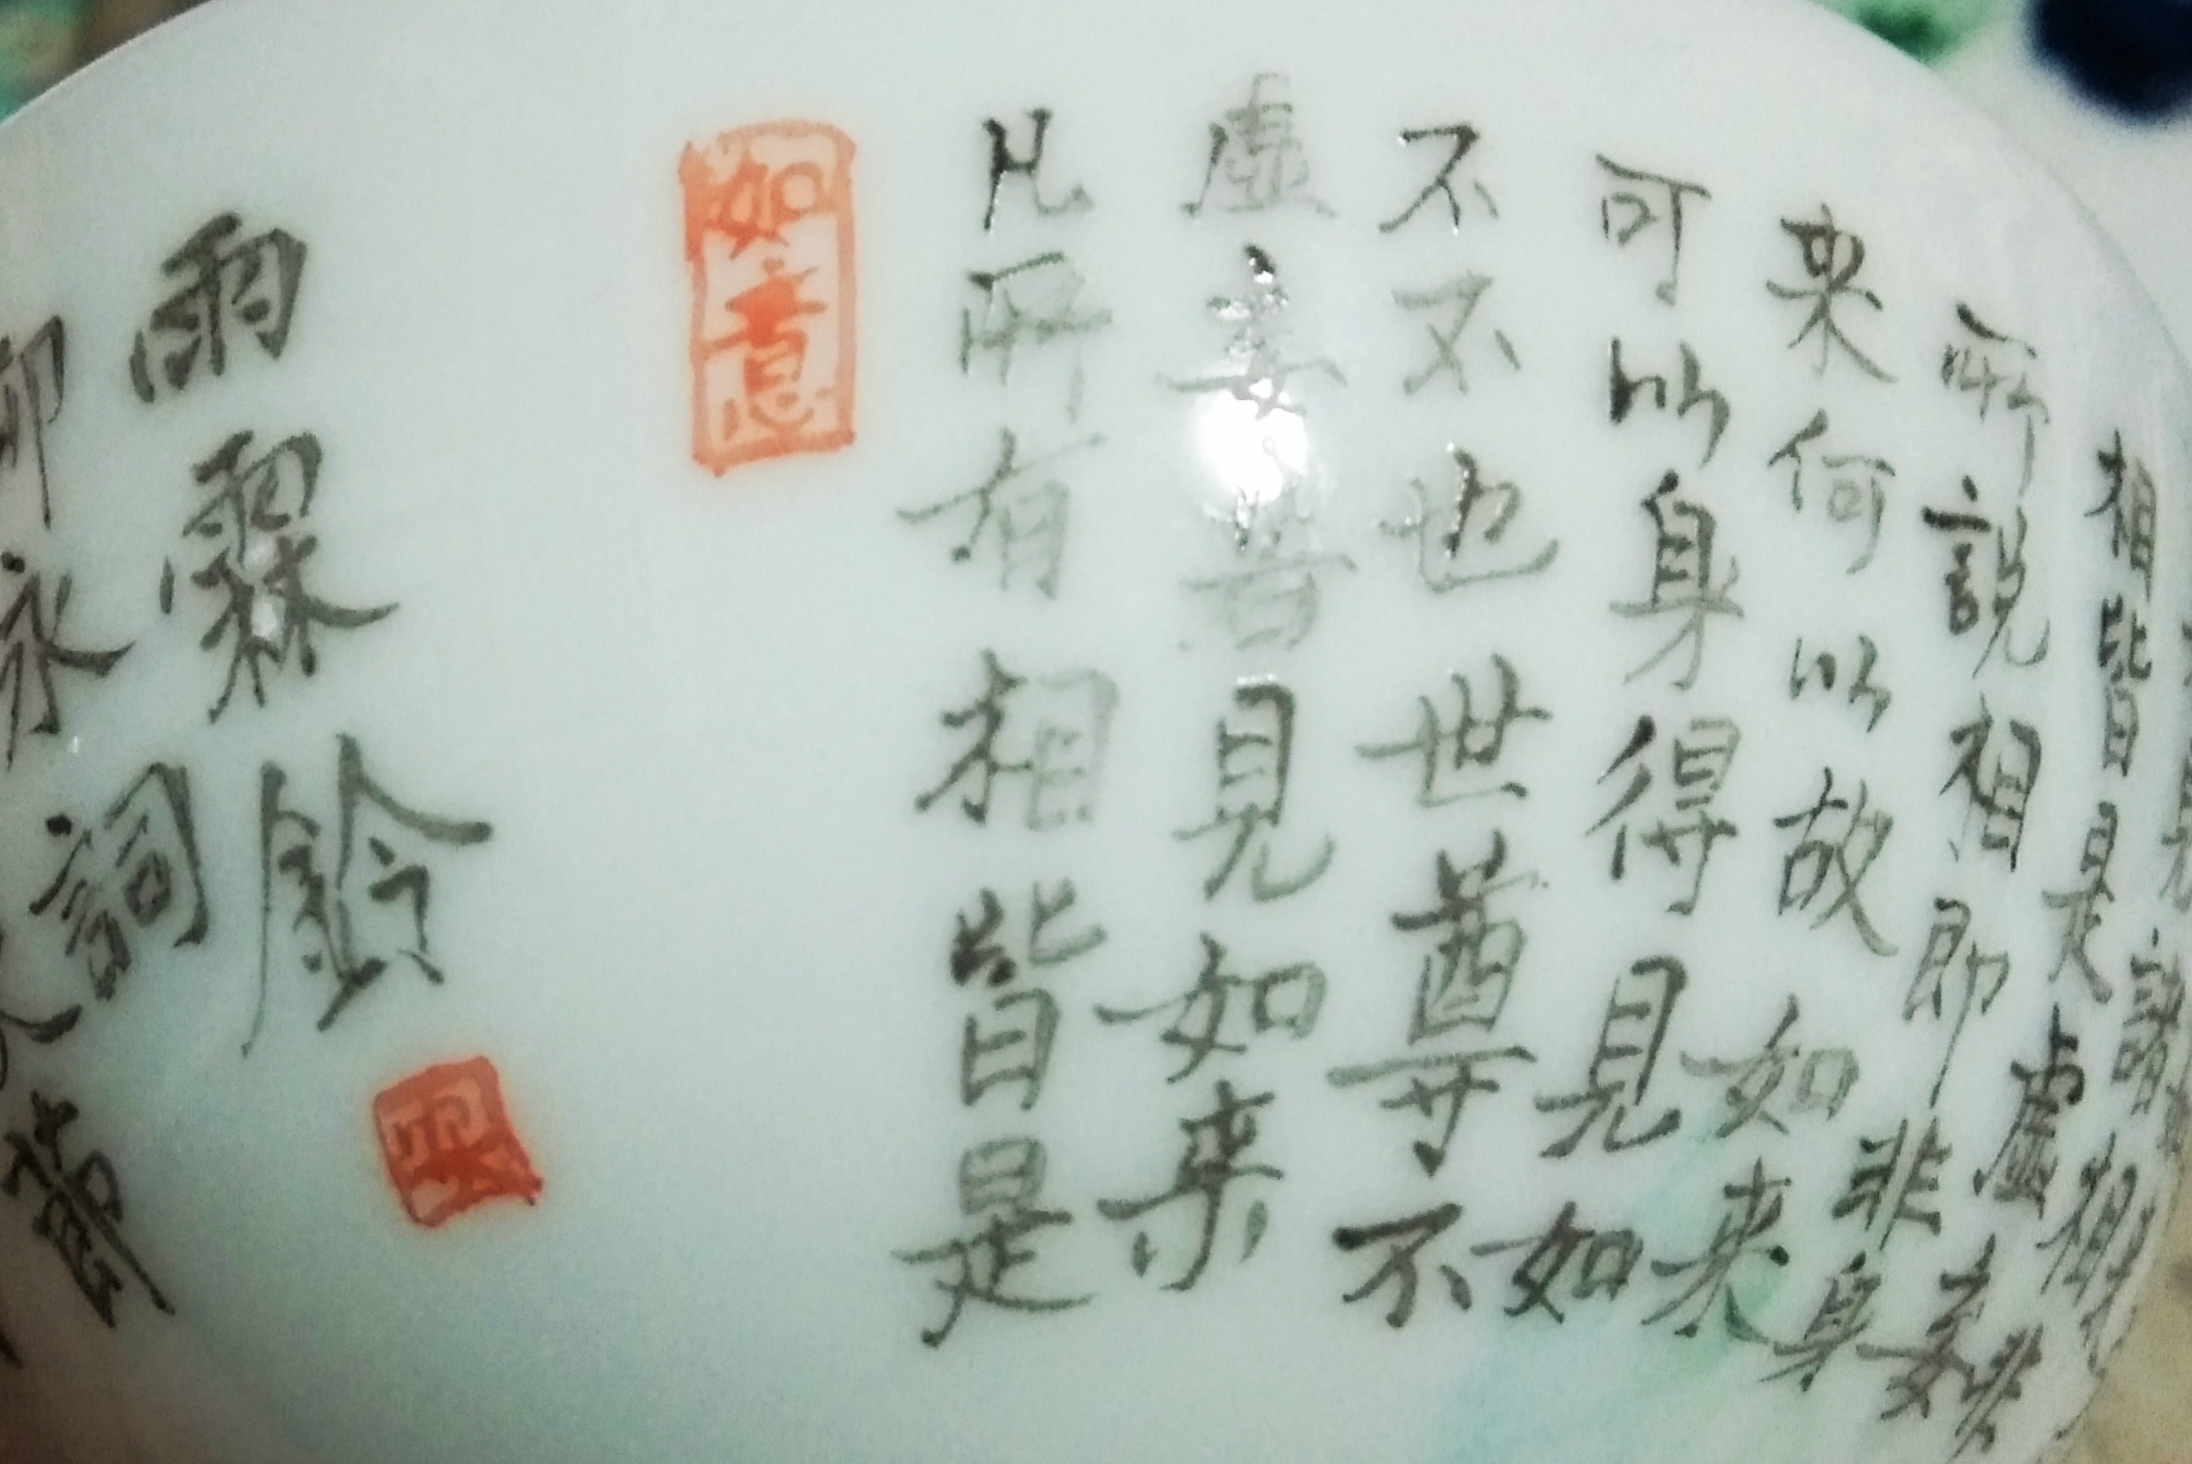 雨霖鈴
永詞
如意
凡所有相皆是
虛妄若見如来
不不也世尊不
可以身得見如
来何以故如来
所說相即非身
相皆是虛妄
諸相非